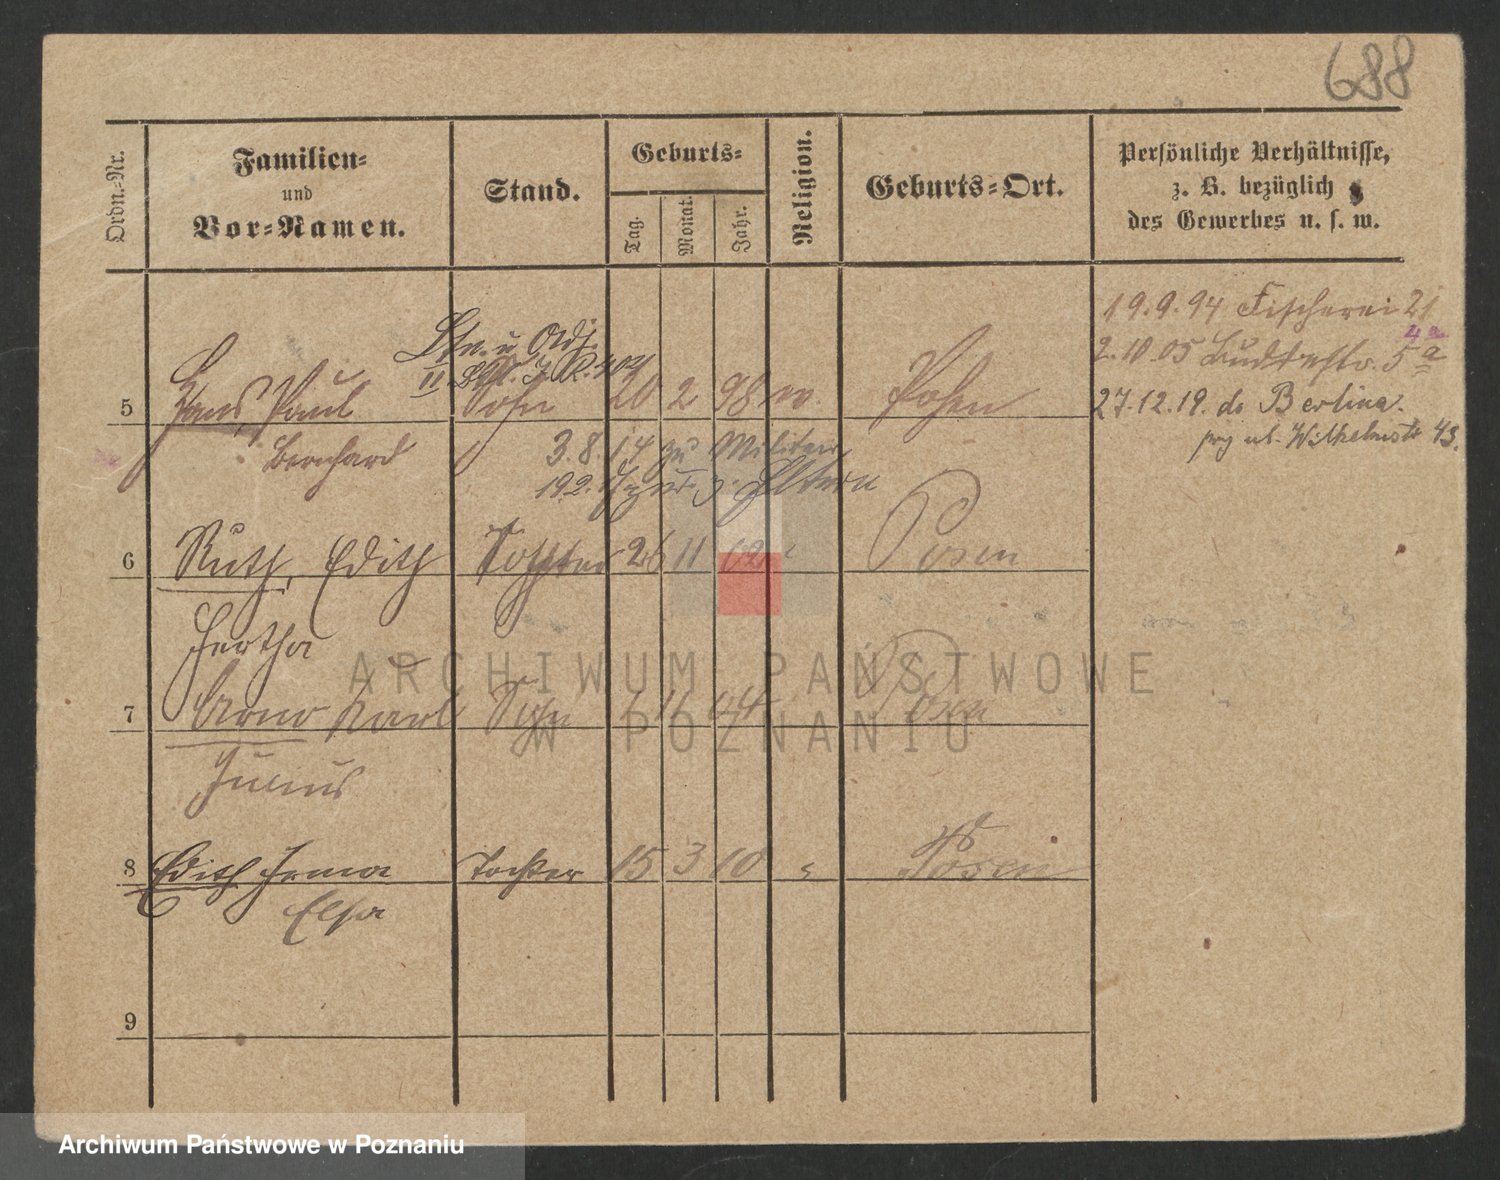 688
Ordn.-Nr.
Familien-
und
Vor-Namen.
Stand.
Geburts-
Tag.
Monat.
Jahr.
Religion.
Geburts-Ort.
Persönliche Verhältnisse,
z. B. bezüglich
des Gewerbes u. s. w.
19.9.94 Fischerei 21
4a
2.10.05 5a
27.12.19. do Berlin
Wilhelmstr 43.
Ltn. u. Adj.
II J. R.
5 Hans, Paul Sohn 20 2 98 Posen
Bernhard
3.8.14 zu Militär
zur d. Eltern
6 Ruth, Edith Tochter 26 11 02 Posen
Hertha
7 Arno Karl Sohn 11 04 Posen
Julius
8 Edith Irma Tochter 15 3 10 " Posen
Elsa
9
ARCHIWUM PAŃSTWOWE
W POZNANIU
Archiwum Państwowe w Poznaniu